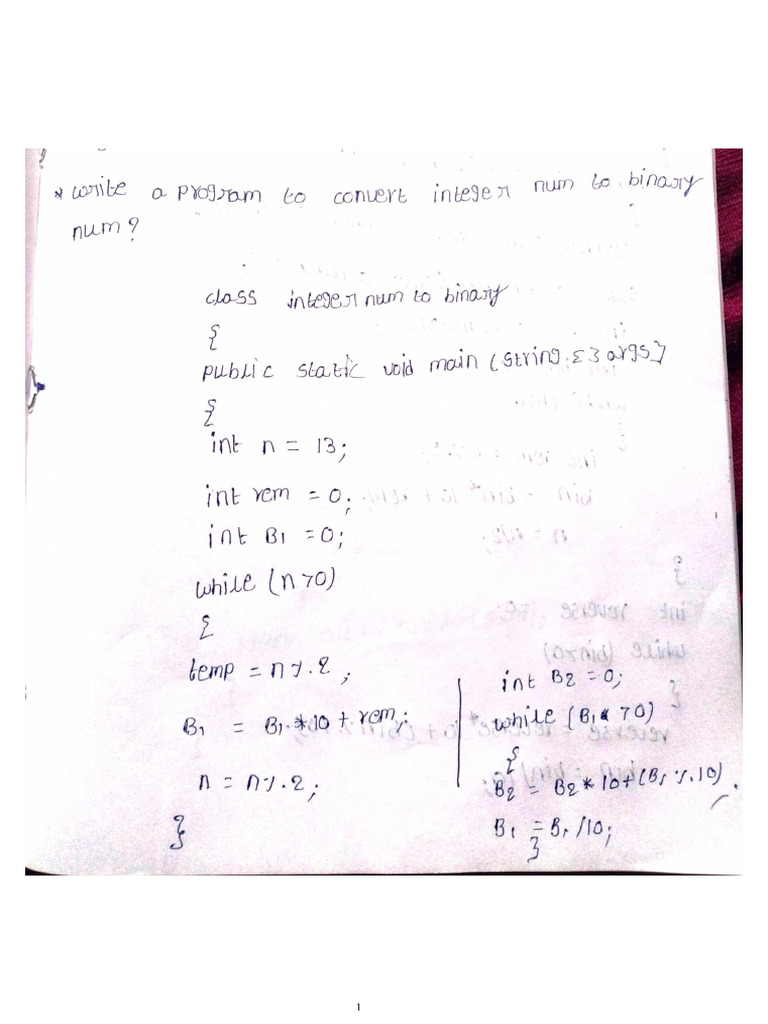 * Write a program to convert integer num to binary
num?
class integer num to binary
{
public static void main (string [] args]
{
int n = 13;
int rem = 0;
int B1 = 0;
while (n>0)
{
temp = n%2;
B1 = B1 * 10 + rem;
n = n%2;
}
int B2 = 0;
while (B1 >0)
{
B2 = B2 * 10+(B1 %10).
B1 = B1/10;
}
1